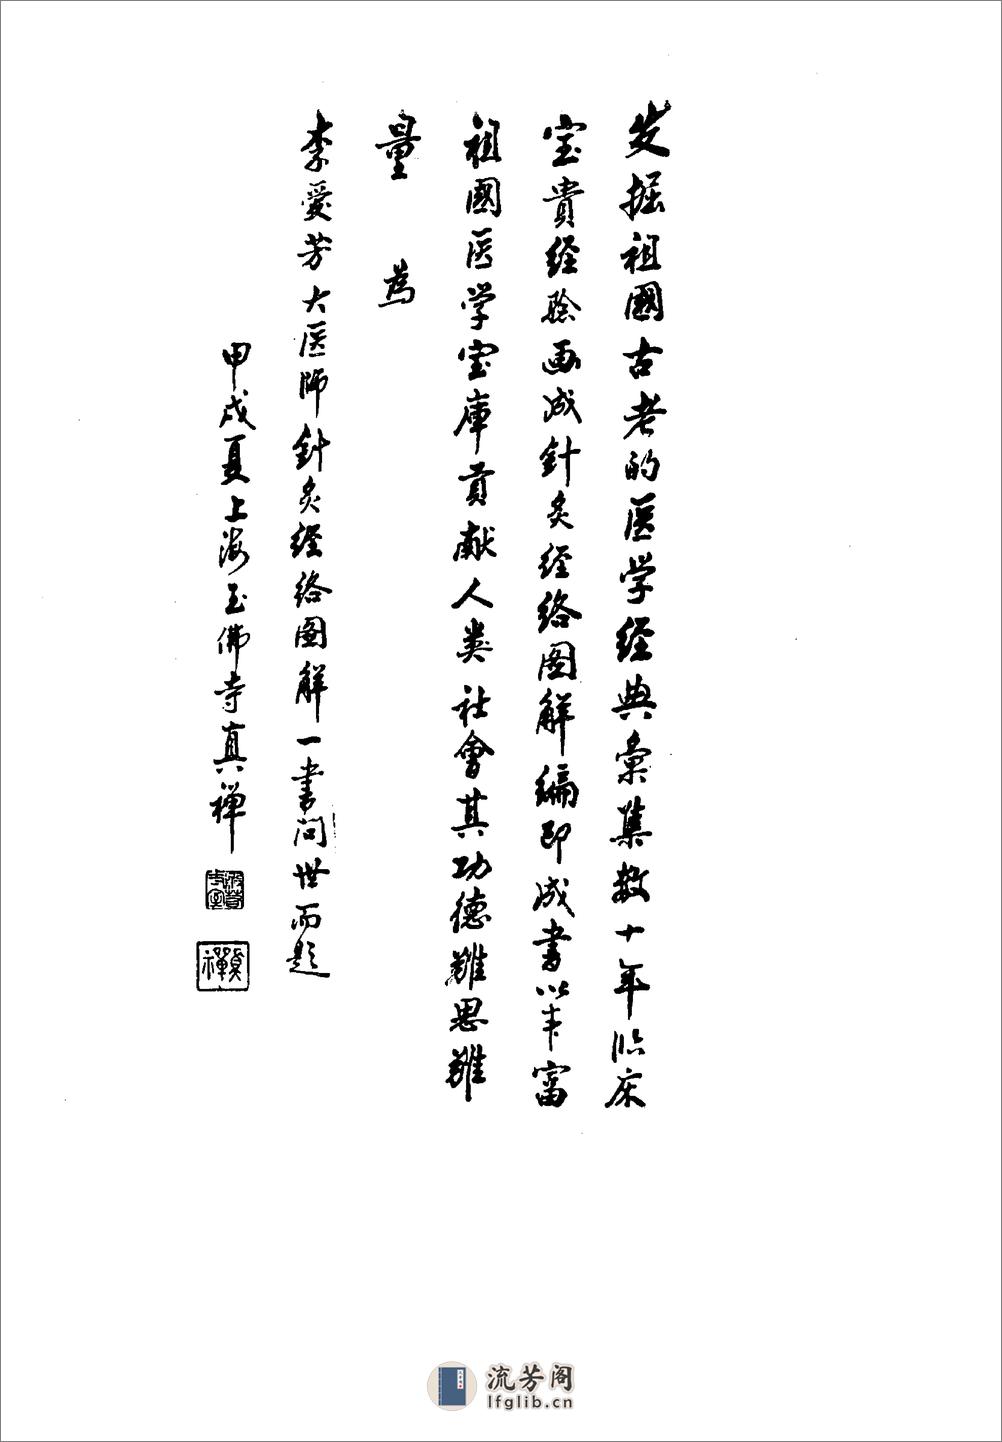 发掘祖國古老的医学经典彙集数十年临床
宝貴经验画成針灸经络图解编印成書以丰富
祖國医学宝庫貢献人类社會其功德難思難
量 為
李爱芳大医師針灸经络图解一書问世而题
甲戌夏上海玉佛寺真禅
真禪
流芳阁
lfglib.cn